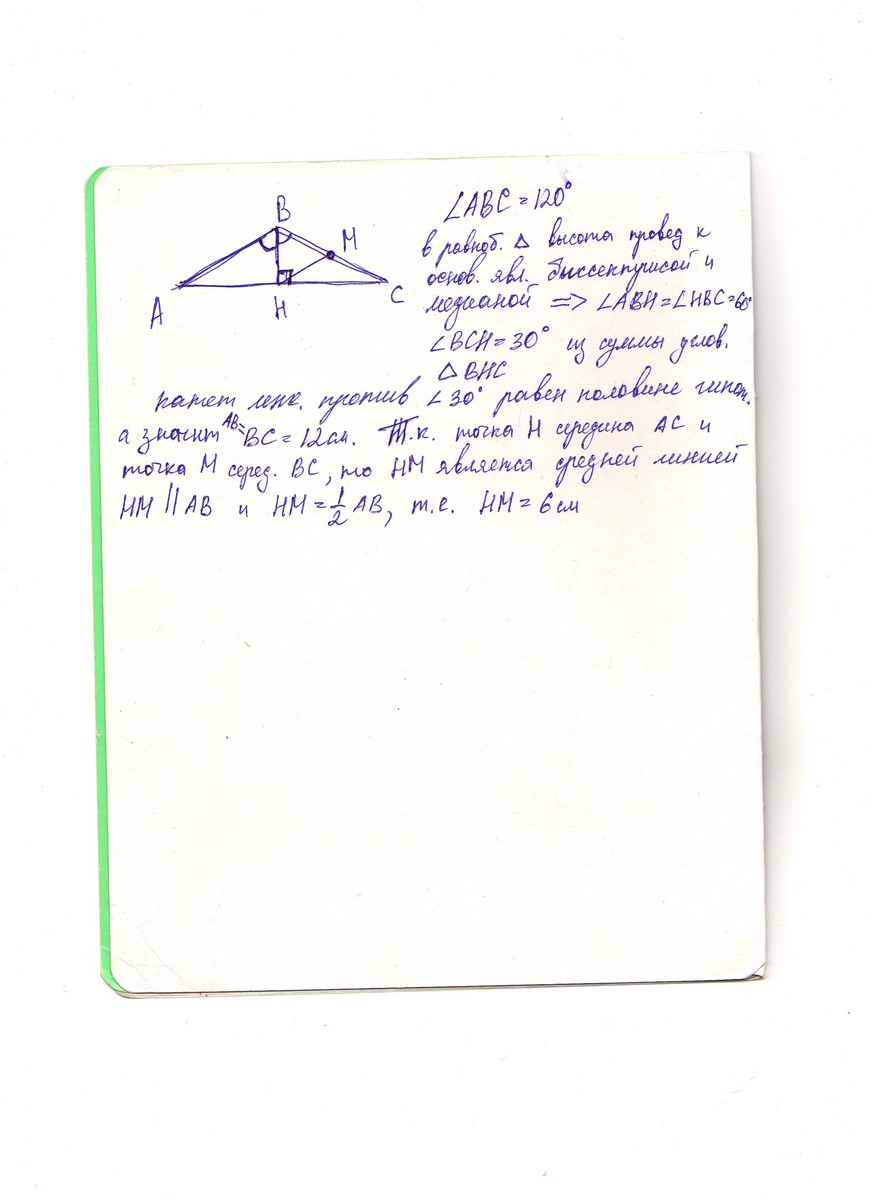 B
M
A
H
C
∠ABC = 120°
в равноб. △ высота провед к
основ. явл. биссектрисой и
медианой => ∠ABH = ∠HBC = 60°
∠BCH = 30° из суммы углов.
△BHC
катет леж. против ∠30° равен половине гипот.
а значит AB=BC = 12 см. Т.к. точка H середина AC и
точка M серед. BC, то HM является средней линией
HM || AB и HM = 1/2 AB, т.е. HM = 6 см